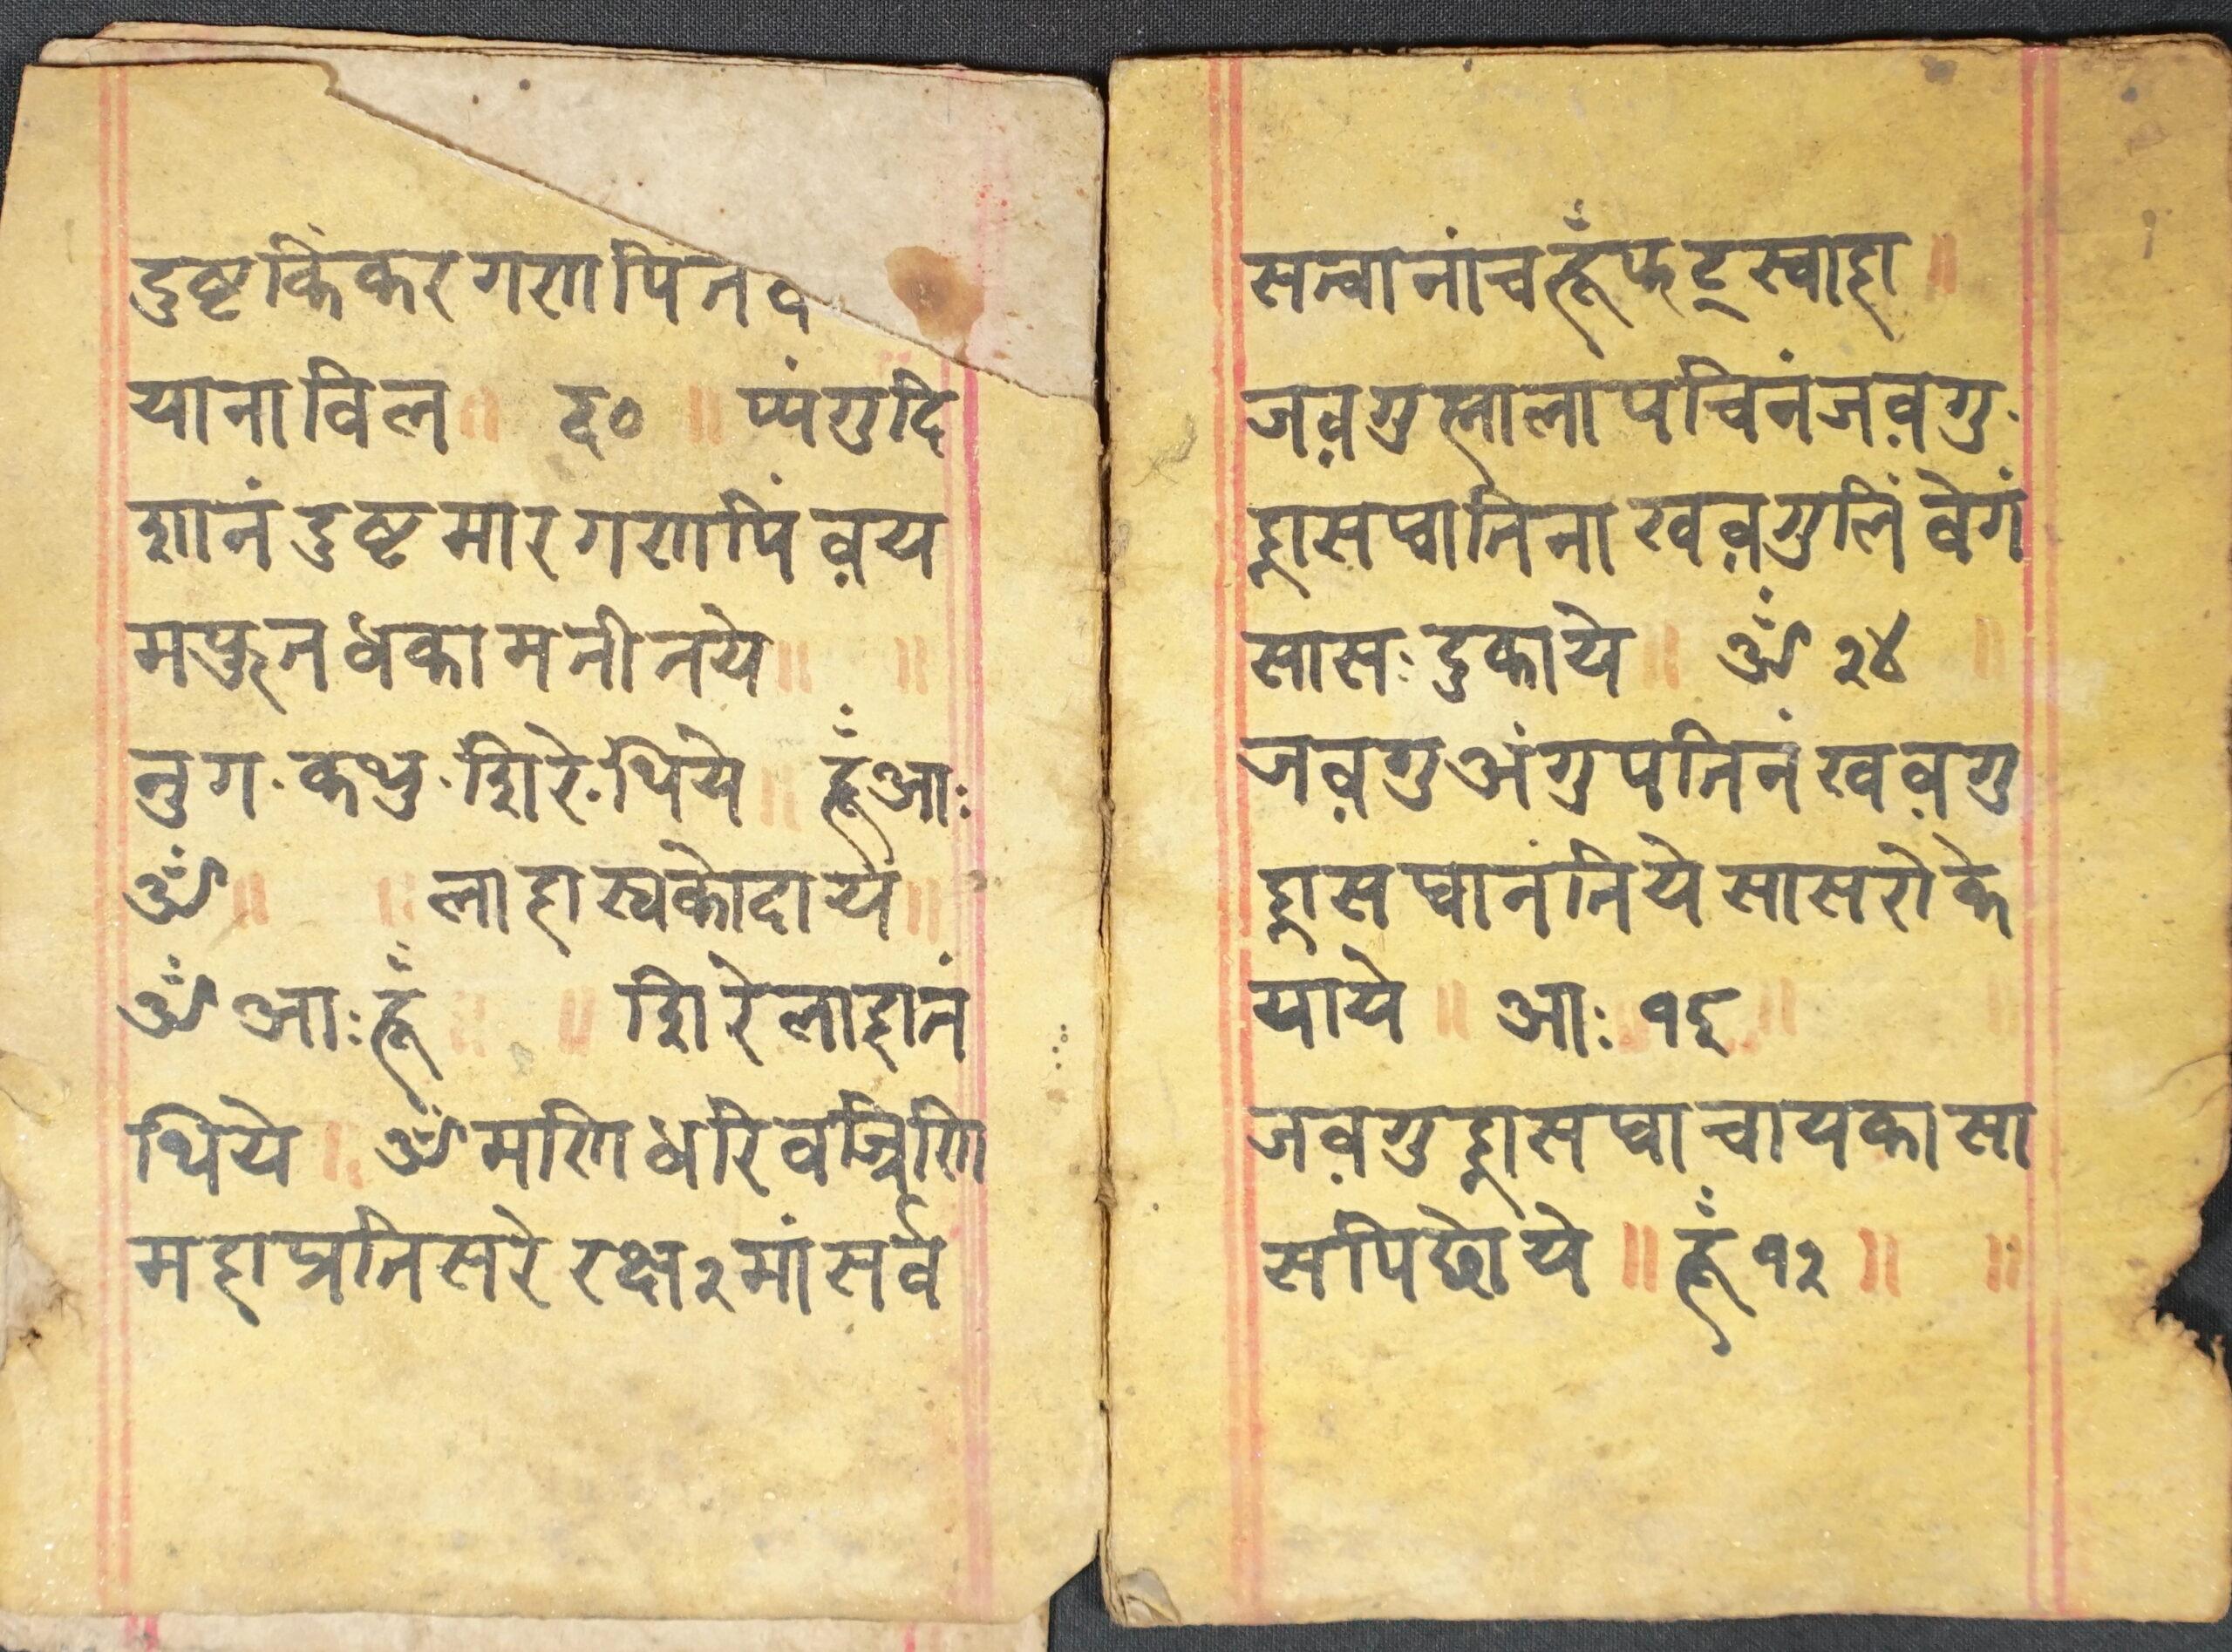 दुष्टकिंकरगणपिंत
यानाविल ॥ द० ॥ प्यंगुदि
शानं दुष्टमारगणपिं व़य
मफूनधकामनीनये ॥ ॥
नुग.कथु.शिरे.थिये ॥ हूँआः
ॐ ॥ ॥ लाहास्यकोदाये ॥
ॐ आःहूँ ॥ ॥ शिरेलाहानं
थिये ॥ ॐ मणिधरिवज्रिणि
महाप्रतिसरे रक्ष२मांसर्व
सत्वानांचहूँफट्स्वाहा ॥
जव़गुह्नालापचिनंजव़गु.
ह्नासप्वातिना खव़गुलिं वेगं
सासःदुकाये ॥ ॐ २४ ॥
जव़गुअंगुपतिनं खव़गु
ह्नासप्वानंतिये सासरोके
याये ॥ आः १६ ॥
जव़गुह्नासप्वाचायकासा
सपिछोये ॥ हूँ १२ ॥ ॥